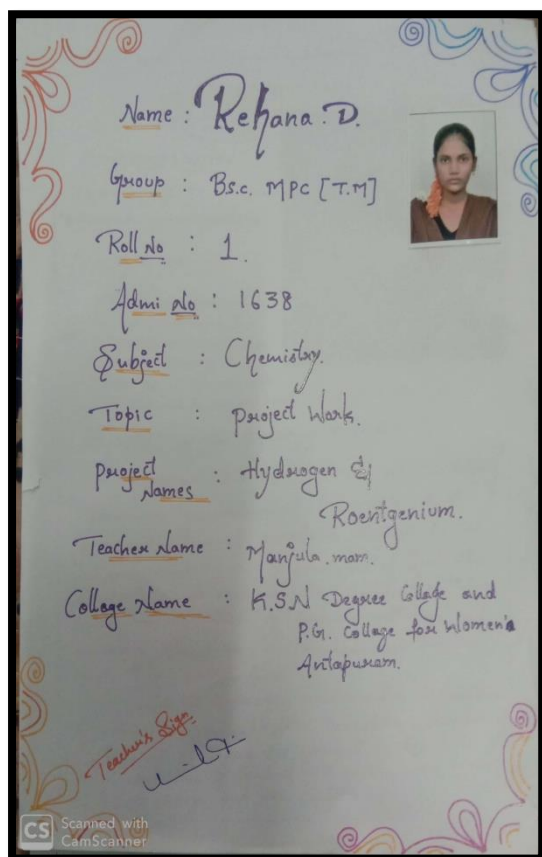 Name : Rehana. D.
Group : Bs.c. MPC [T.M]
Roll No : 1.
Admi No : 1638
Subject : Chemistry.
Topic : Project Work.
Project Names : Hydrogen &
Roentgenium.
Teacher Name : Manjula. mam.
College Name : K.S.N Degree College and
P.G. College for Women's
Antapuram.
Teacher's Sign
CS Scanned with
CamScanner